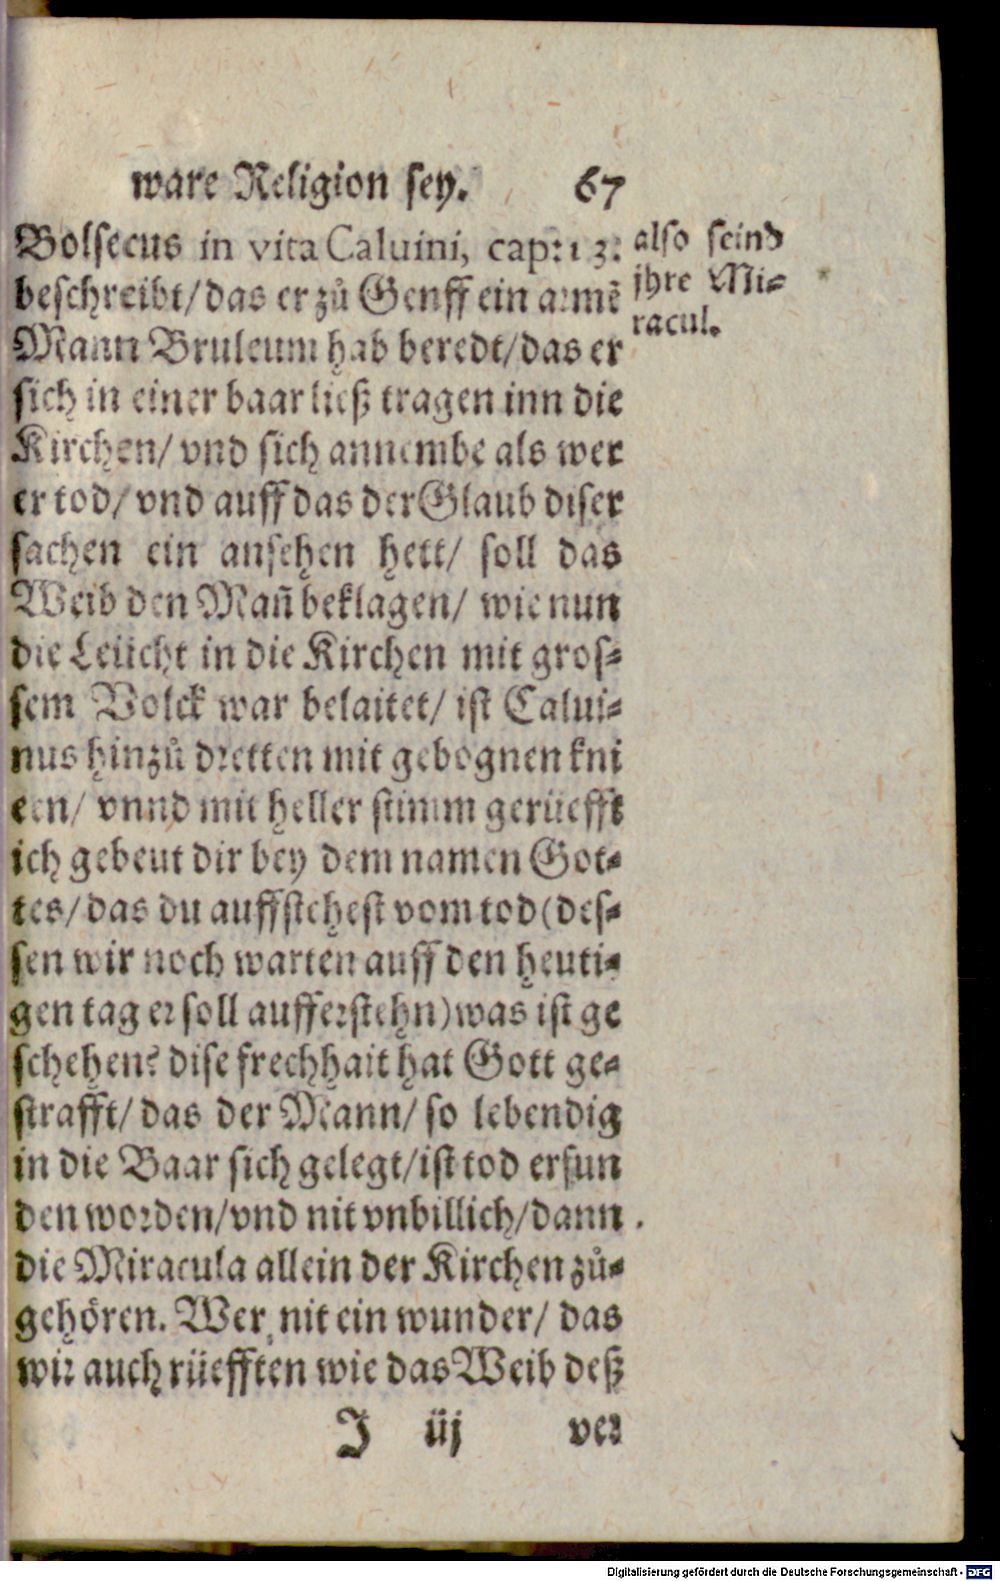 ware Religion sey. 67
Bolsecus in vita Caluini, cap: 13:
beschreibt/das er zů Genff ein armē
Mann Bruleum hab beredt/das er
sich in einer baar ließ tragen inn die
Kirchen/ vnd sich annembe als wer
er tod/ vnd auff das der Glaub diser
sachen ein ansehen hett/ soll das
Weib den Mañ beklagen/ wie nun
die Leücht in die Kirchen mit gros-
sem Volck war belaitet/ ist Calui-
nus hinzů dretten mit gebognen kni
een/ vnnd mit heller stimm gerüefft
ich gebeut dir bey dem namen Got-
tes/das du auffstehest vom tod (des-
sen wir noch warten auff den heuti-
gen tag er soll aufferstehn) was ist ge
schehen? dise frechhait hat Gott ge-
strafft/ das der Mann/ so lebendig
in die Baar sich gelegt/ist tod erfun
den worden/vnd nit vnbillich/dann
die Miracula allein der Kirchen zů-
gehören. Wer nit ein wunder/ das
wir auch rüefften wie das Weib deß
J iij ver
also seind
jhre Mi-
racul.
Digitalisierung gefördert durch die Deutsche Forschungsgemeinschaft - DFG